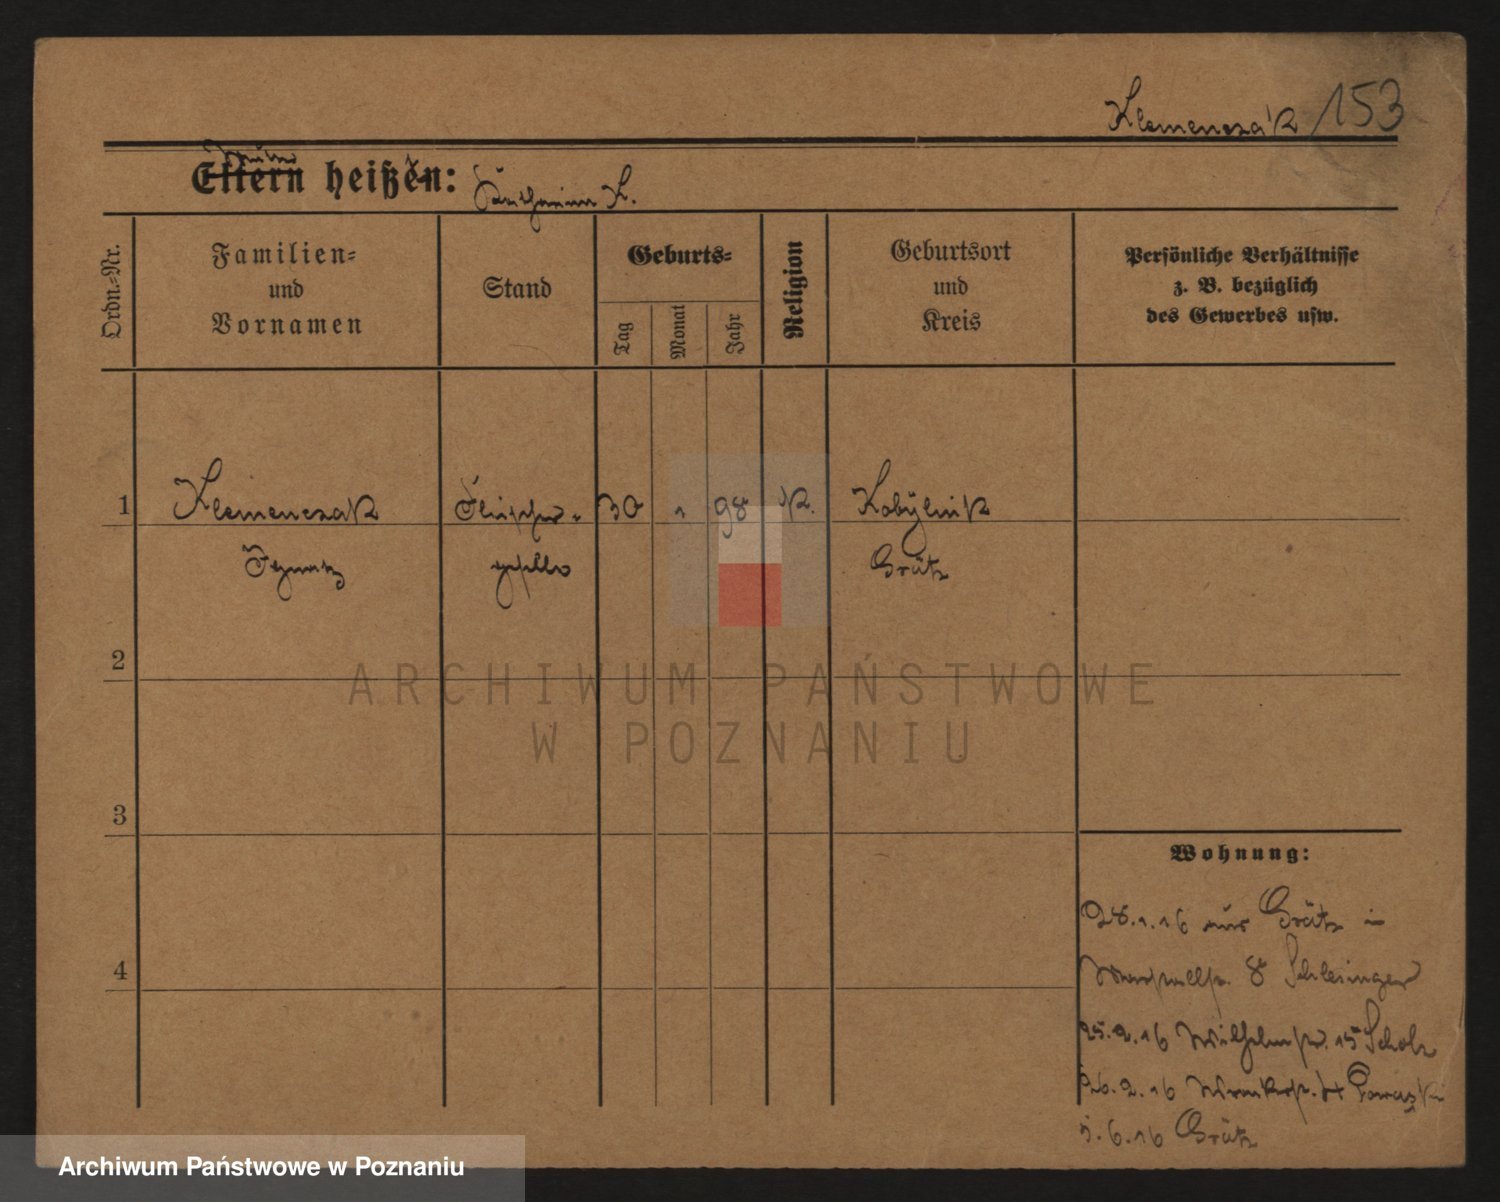 Klemenczak 153
Mutter
Eltern heißen: Katharina K.
Ordn.-Nr.
Familien-
und
Vornamen
Stand
Geburts-
Tag
Monat
Jahr
Religion
Geburtsort
und
Kreis
Persönliche Verhältnisse
z. B. bezüglich
des Gewerbes usw.
1 Klemenczak Fleischer- 30 1 98 K. Kobylnik
Ignatz geselle Grätz
2
ARCHIWUM PAŃSTWOWE
W POZNANIU
3
Wohnung:
28.1.16 aus Grätz in
8 Schlesinger
25.2.16 Wilhelmstr. 15 Scholz
26.2.16 Wronkerstr.
4
5.6.16 Grätz
Archiwum Państwowe w Poznaniu